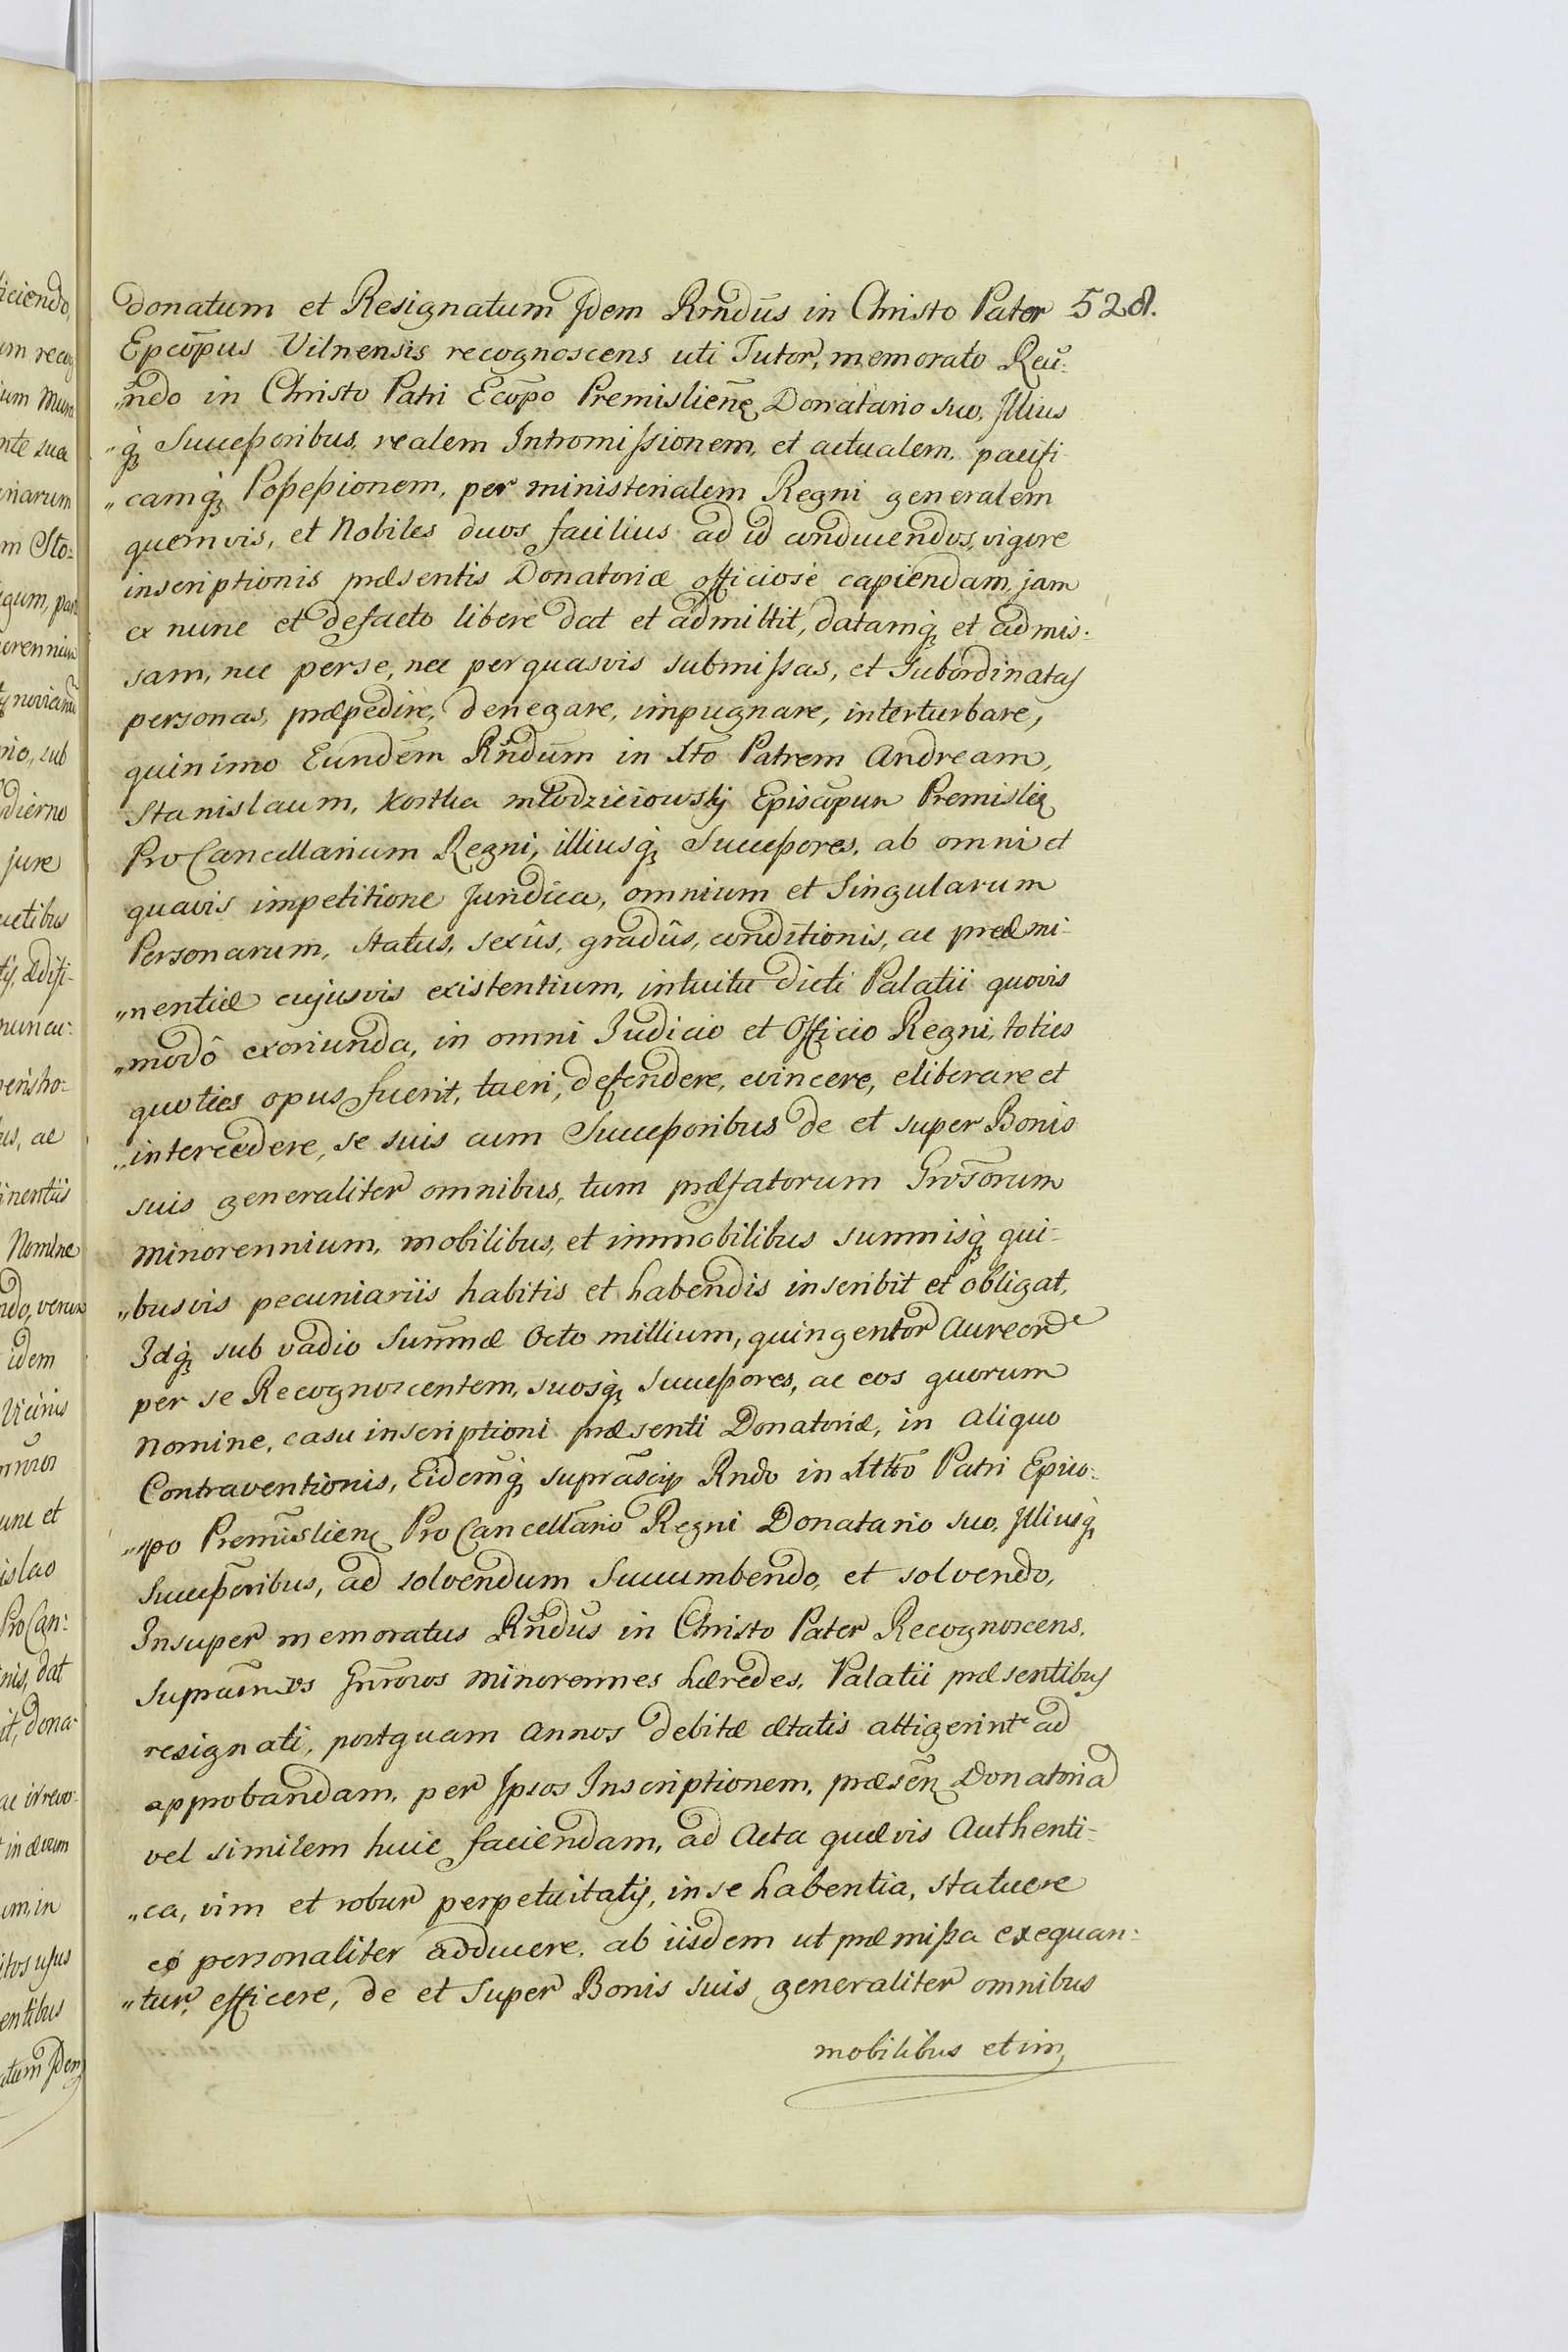 donatum et Resignatum Idem Rñdus in Christo Pater 528.
Epcopus Vilnensis recognoscens uti Tutor, memorato Reu-
„ndo in Christo Patri Ecopo Premislieñe Donatario suo, Illius
„q̃ Successoribus, realem Intromissionem, et actualem, pacifi-
„camq̃ Possessionem, per ministerialem Regni generalem
quemvis, et Nobiles duos facilius ad id conducendos, vigore
inscriptionis præsentis Donatoriæ officiosè capiendam, jam
ex nunc et defacto liberè dat et admittit, datamq̃ et admis-
sam, nec perse, nec perquasvis submissas, et Subordinatas
personas, præpedire, denegare, impugnare, interturbare,
quinimo Eundem Rñdum in Xto Patrem Andream,
Stanislaum, Kostka młodzieiowskj Episcopum Premislieñ
ProCancellarium Regni, illiusq̃ Successores, ab omni et
quavis impetitione Juridica, omnium et Singularum
Personarum, status, sexûs, gradûs, conditionis, ac præmi-
„nentiæ cujusvis existentium, intuitu dicti Palatii quovis
„modô exoriunda, in omni Judicio et Officio Regni, toties
quoties opus fuerit, tueri, defendere, evincere, eliberare et
„intercedere, se suis cum Successoribus de et super Bonis
suis generaliter omnibus, tum præfatorum Grosorum
minorennium, mobilibus, et immobilibus summisq̃ qui-
„busvis pecuniariis habitis et habendis inscribit et obligat,
Idq̃ sub vadio Sum̃æ Octo millium, quingentor Aureor
per se Recognoscentem, suosq̃ Successores, ac eos quorum
Nomine, casu inscriptioni præsenti Donatoriæ, in Aliquo
Contraventionis, Eidemq̃ suprascip Rndo in Xtto Patri Epico-
„po Premislieñ ProCancellario Regni Donatario suo, Illiusq̃
Successoribus, ad solvendum Succumbendo, et solvendo,
Insuper memoratus Rñdus in Christo Pater Recognoscens,
minorennes hæredes, Palatii præsentibus
resignati, postquam Annos debitæ ætatis attigerint ad
approbandam, per Ipsos Inscriptionem, præseñ Donatoria
vel similem huic faciendam, ad Acta quævis Authenti-
„ca, vim et robur perpetuitatis, inse habentia, statuere
eô personaliter adducere, ab iisdem ut præmissa exequan-
„tur, efficere, de et super Bonis suis generaliter omnibus
mobilibus et im